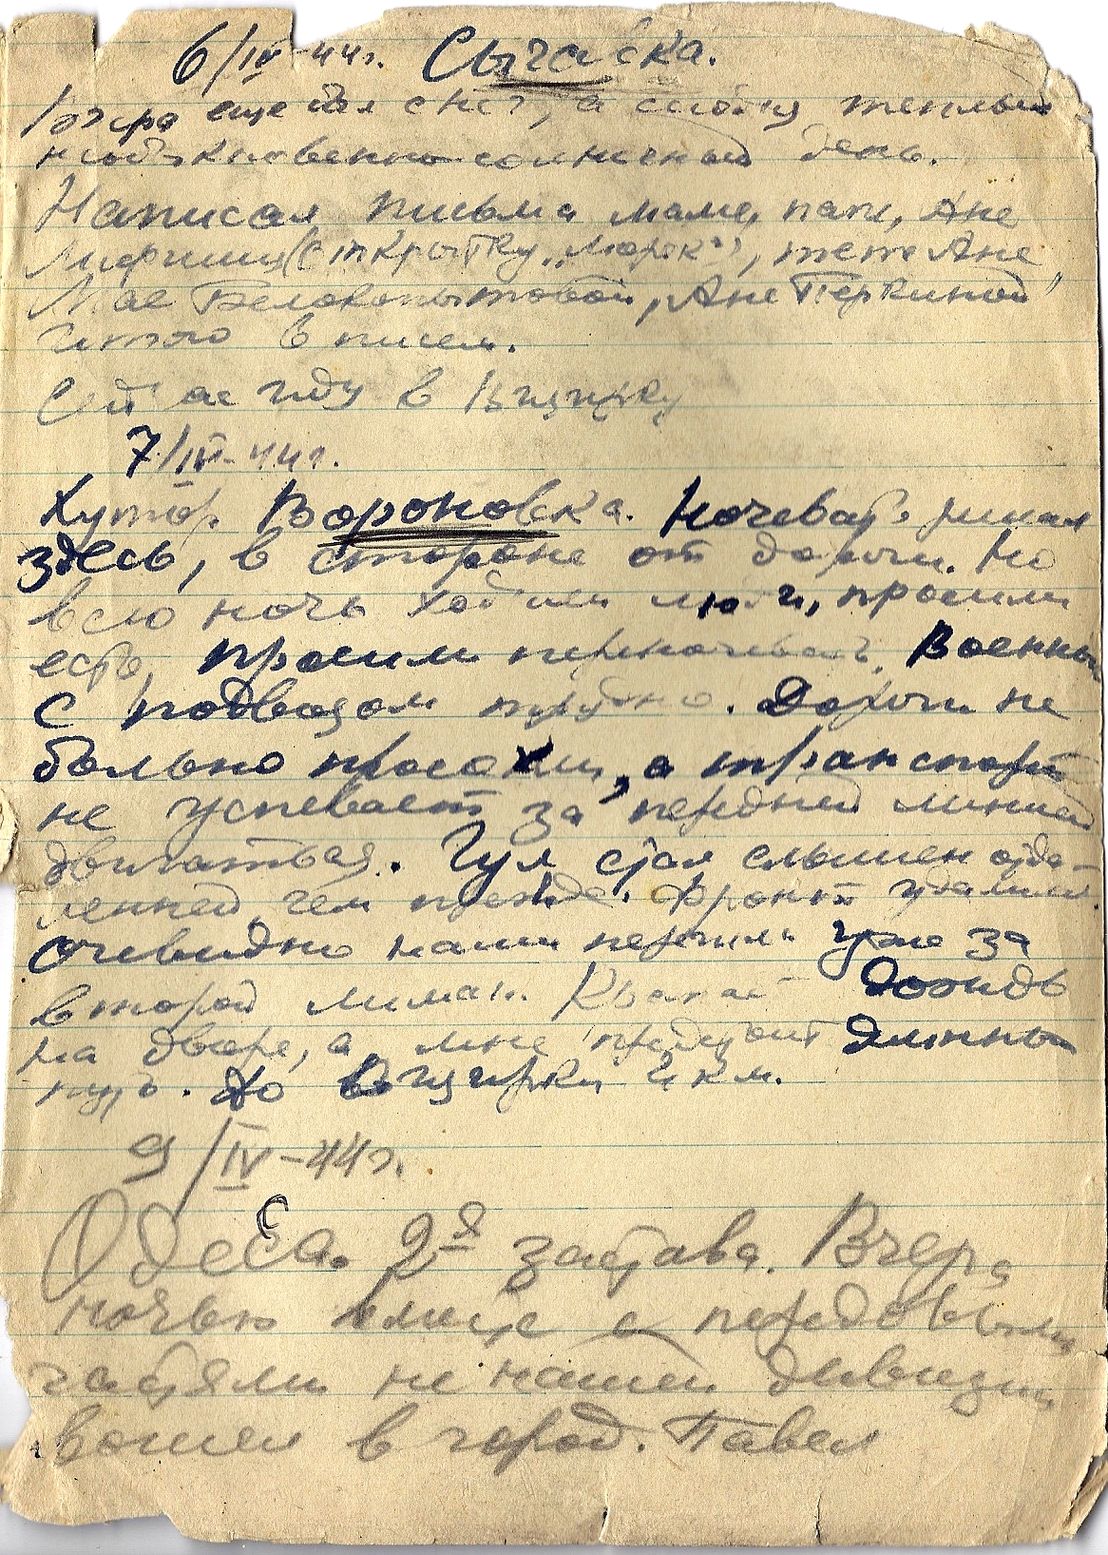 6/IV-44г. Сычавка.
Вчера еще был снег, а сегодня теплый
необыкновенно солнечный день.
Написал письма маме, папе, Ане
Лифшиц (открытку "Моряк"), тете Ане,
Мае Белокопытовой, Ане Перкиной
итого 6 писем.
Сейчас иду в Визирку
7/IV-44г.
Хутор Вороновка. Ночевать решил
здесь, в стороне от дороги. Но
всю ночь ходили люди, просили
есть, просили переночевать. Военным
с подводам трудно. Дороги не
больно просохли, а транспорт
не успевает за передней линией
двигаться. Гул стал слышен отда-
ленней, чем прежде. Фронт удалился.
Очевидно наши перешли уже за
второй лиман. Капает дождь
на дворе, а мне предстоит длинный
путь. До Визирки 4 км.
9/IV-44г.
Одесса. 2-я застава. Вчера
ночью вместе с передовыми
частями не нашей дивизии
вошел в город. Павел